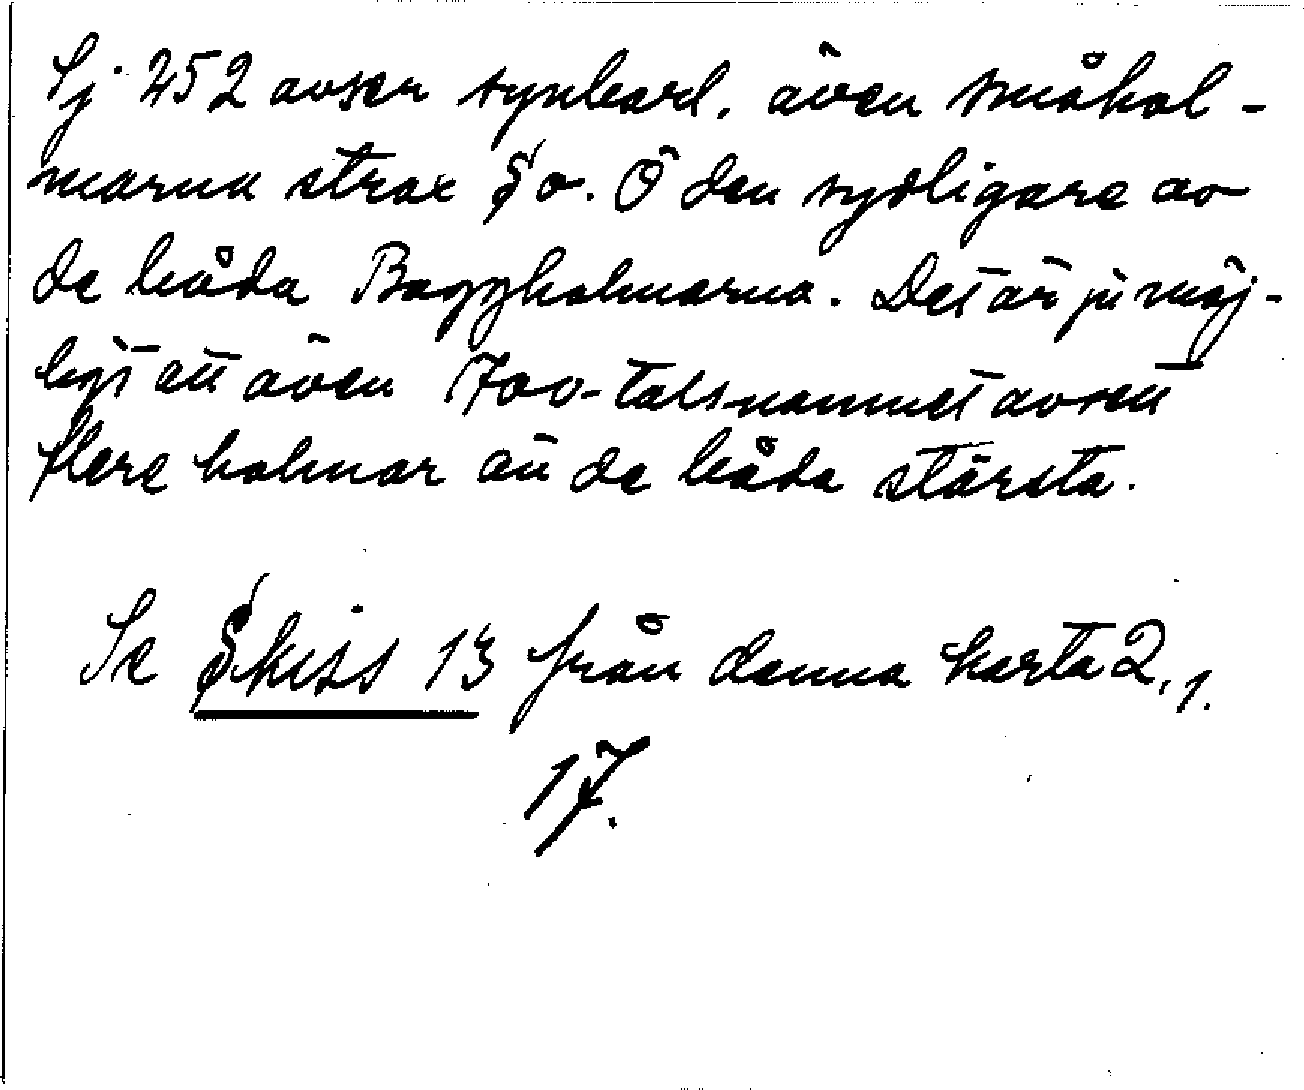 Sj. 252 avser synbarl. även småhol-
marna strax S o. Ö den sydligare av
de båda Baggholmarna. Det är ju möj-
ligt att även 1700-talsnamnet avsett
flere holmar än de båda största.
Se Skiss 13 från denna karta 2, 1.
17.